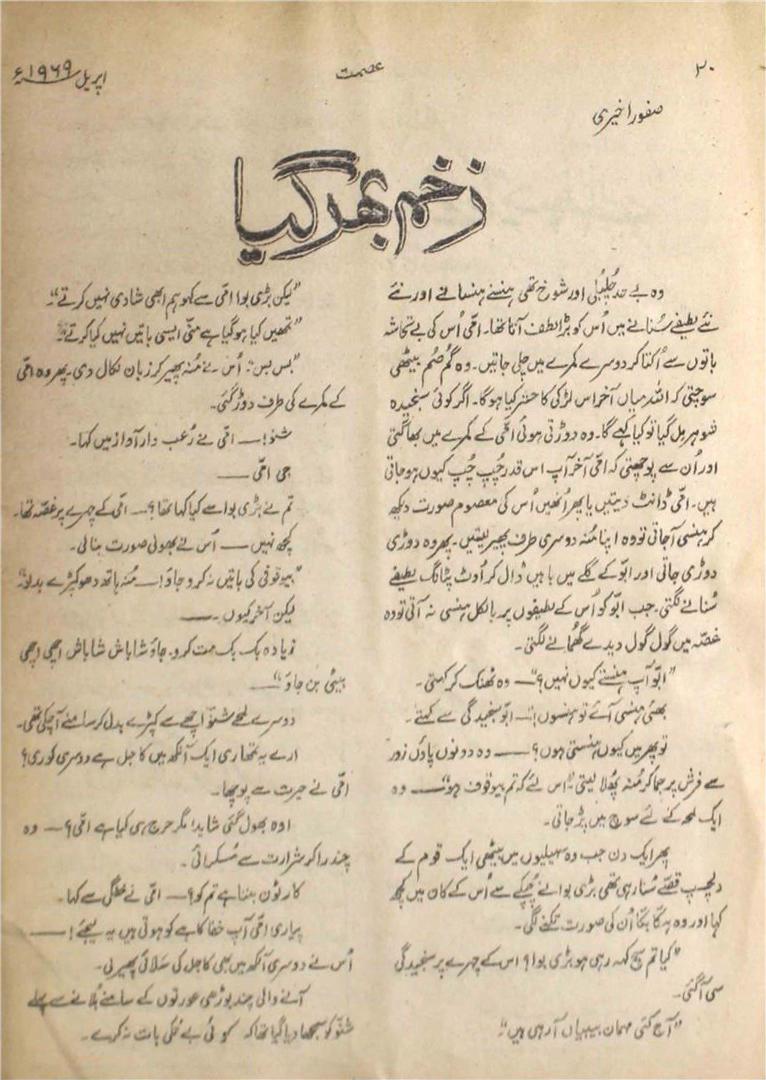 ۲۰
عصمت
اپریل ۱۹۶۹ء
صفورا خیری
زخم بھر گیا
وہ بے حد چلبلی اور شوخ تھی ہنسنے ہنسانے اور نئے
نئے لطیفے سُنانے میں اُس کو بڑا لطف آتا تھا۔ امّی اُس کی بے تحاشہ
باتوں سے اُکتا کر دوسرے کمرے میں چلی جاتیں۔ وہ گم صُم بیٹھی
سوچتی کہ اللہ میاں آخر اس لڑکی کا حشر کیا ہوگا۔ اگر کوئی سنجیدہ
شوہر مل گیا تو کیا کہے گا۔ وہ دوڑتی ہوئی امّی کے کمرے میں بھاگتی
اور اُن سے پوچھتی کہ امّی آخر آپ اس قدر چُپ چُپ کیوں ہو جاتی
ہیں۔ امّی ڈانٹ دیتیں یا پھر اُنھیں اُس کی معصوم صورت دیکھ
کر ہنسی آ جاتی تو وہ اپنا مُنہ دوسری طرف پھیر لیتیں۔ پھر وہ دوڑی
دوڑی جاتی اور ابّو کے گلے میں باہیں ڈال کر اُوٹ پٹانگ لطیفے
سُنانے لگتی۔ جب ابّو کو اُس کے لطیفوں پر بالکل ہنسی نہ آتی تو وہ
غصّہ میں گول گول دیدے گھُمانے لگتی۔
"ابّو آپ ہنستے کیوں نہیں؟"— وہ ٹھنک کر کہتی۔
بھئی ہنسی آئے تو ہنسوں!"۔ ابّو سنجیدگی سے کہتے۔
تو پھر میں کیوں ہنستی ہوں؟ —— وہ دونوں پاؤں زور
سے فرش پر جما کر مُنہ پُھلا لیتی۔ "اس لئے کہ تم بیوقوف ہو"—— وہ
ایک لمحہ کے لئے سوچ میں پڑ جاتی۔
پھر ایک دن جب وہ سہیلیوں میں بیٹھی ایک قوم کے
دلچسپ قصّے سُنا رہی تھی بڑی بوا نے چُپکے سے اُس کے کان میں کچھ
کہا اور وہ ہکّا بکّا اُن کی صورت تکنے لگی۔
"کیا تم سچ کہہ رہی ہو بڑی بوا؟ اس کے چہرے پر سنجیدگی
سی آ گئی۔
"آج کئی مہمان بیبیاں آ رہی ہیں"۔
"لیکن بڑی بوا امّی سے کہو ہم ابھی شادی نہیں کرتے"۔
"تمھیں کیا ہو گیا ہے منّی ایسی باتیں نہیں کیا کرتے"۔
"بس بس"۔ اُس نے مُنہ پھیر کر زبان نکال دی۔ پھر وہ امّی
کے کمرے کی طرف دوڑ گئی۔
شنّو!— امّی نے رُعب دار آواز میں کہا۔
جی امّی ——
تم نے بڑی بوا سے کیا کہا تھا؟— امّی کے چہرے پر غصّہ تھا۔
کچھ نہیں —— اُس نے بھولی صورت بنا لی۔
"بیوقوفی کی باتیں نہ کرو جاؤ!— مُنہ ہاتھ دھو کپڑے بدلو"۔
لیکن آخر کیوں۔——
زیادہ بک بک مت کرو۔ جاؤ شاباش شاباش اچھی اچھی
بیٹی بن جاؤ"——
دوسرے لمحے شنّو اچھے سے کپڑے بدل کر سامنے آ چکی تھی۔
ارے یہ تمھاری ایک آنکھ میں کاجل ہے دوسری کوری؟
امّی نے حیرت سے پوچھا۔
اوہ بھول گئی شاید! مگر حرج ہی کیا ہے امّی؟— وہ
چندرا کر شرارت سے مُسکرائی۔
کارٹون بننا ہے تم کو؟— امّی نے خفگی سے کہا۔
پیاری امّی آپ خفا کاہے کو ہوتی ہیں یہ لیجئے!——
اُس نے دوسری آنکھ میں بھی کاجل کی سلائی پھیر لی۔
آنے والی چند بوڑھی عورتوں کے سامنے بُلانے سے پہلے
شنّو کو سمجھا دیا گیا تھا کہ کوئی بے تکی بات نہ کرے۔